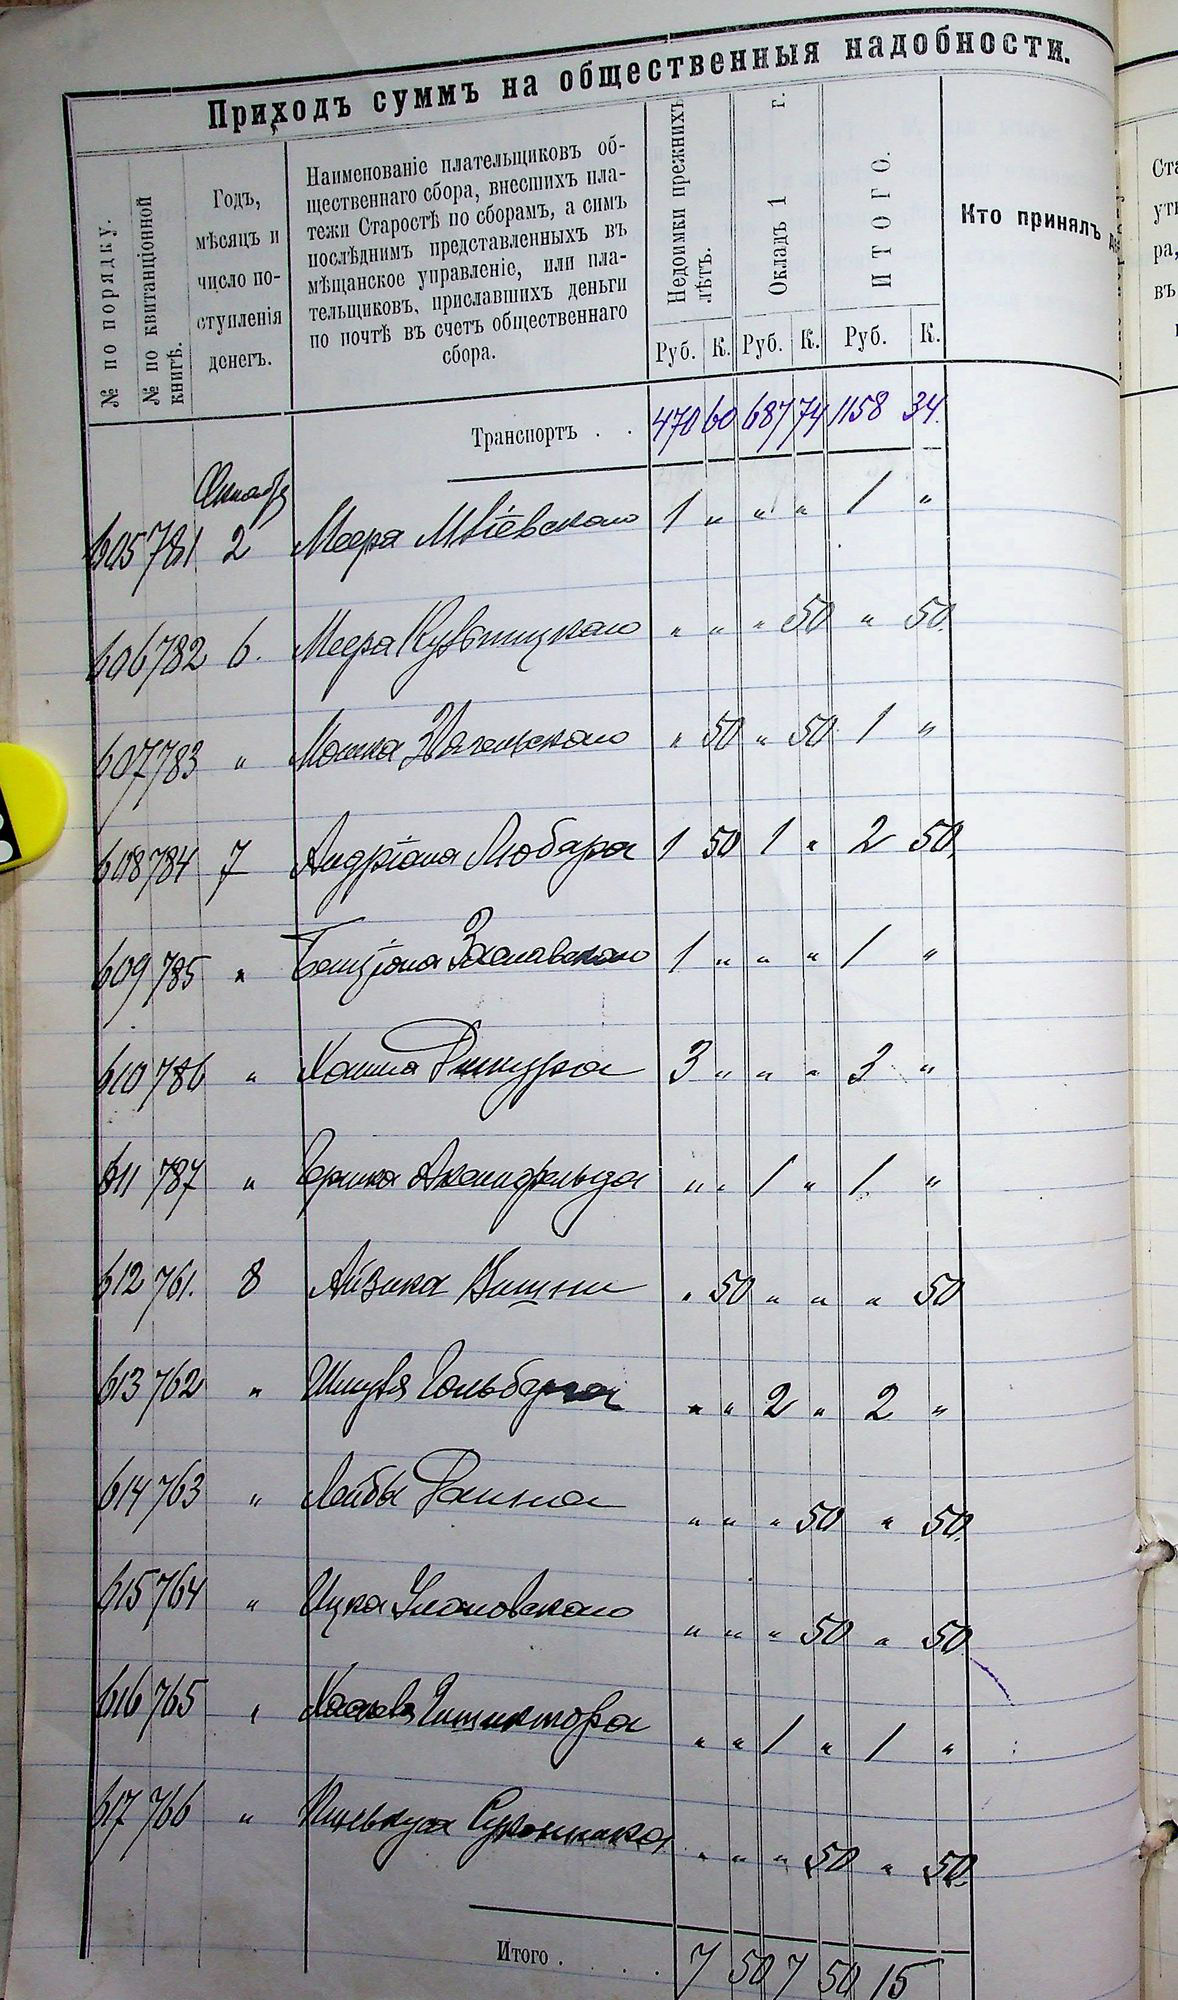 Приходъ суммъ на общественныя надобности.
№ по порядку.
№ по квитанціонной
книгѣ.
Годъ,
мѣсяцъ и
число по-
ступленія
денегъ.
Наименованіе плательщиковъ об-
щественнаго сбора, внесшихъ пла-
тежи Старостѣ по сборамъ, а симъ
послѣднимъ представленныхъ въ
мѣщанское управленіе, или пла-
тельщиковъ, приславшихъ деньги
по почтѣ въ счетъ общественнаго
сбора.
Недоимки прежнихъ
лѣтъ.
Окладъ 1 г.
ИТОГО.
Кто принялъ
Руб. К. Руб. К. Руб. К.
Транспортъ . . 470 60 687 74 1158 34.
605 781 2 Меера 1 „ „ „ 1 „
606 782 6. Меера „ „ „ 50 „ 50.
607 783 „ Мошка „ 50 „ 50 1 „
608 784 7 Андріона Любара 1 50 1 „ 2 50.
609 785 „ Бенціона Заславскаго 1 „ „ „ 1 „
610 786 „ 3 „ „ „ 3 „
611 787 „ „ „ 1 „ 1 „
612 761. 8 Айзика „ 50 „ „ „ 50
613 762 „ Гольберга „ „ 2 „ 2 „
614 763 „ Лейбы „ „ „ 50 „ 50.
615 764 „ Ицка Улановскаго „ „ „ 50 „ 50
616 765 „ „ „ 1 „ 1 „
617 766 „ „ „ „ 50 „ 50.
Итого . . . . 7 50 7 50 15
Ста
ра,
въ